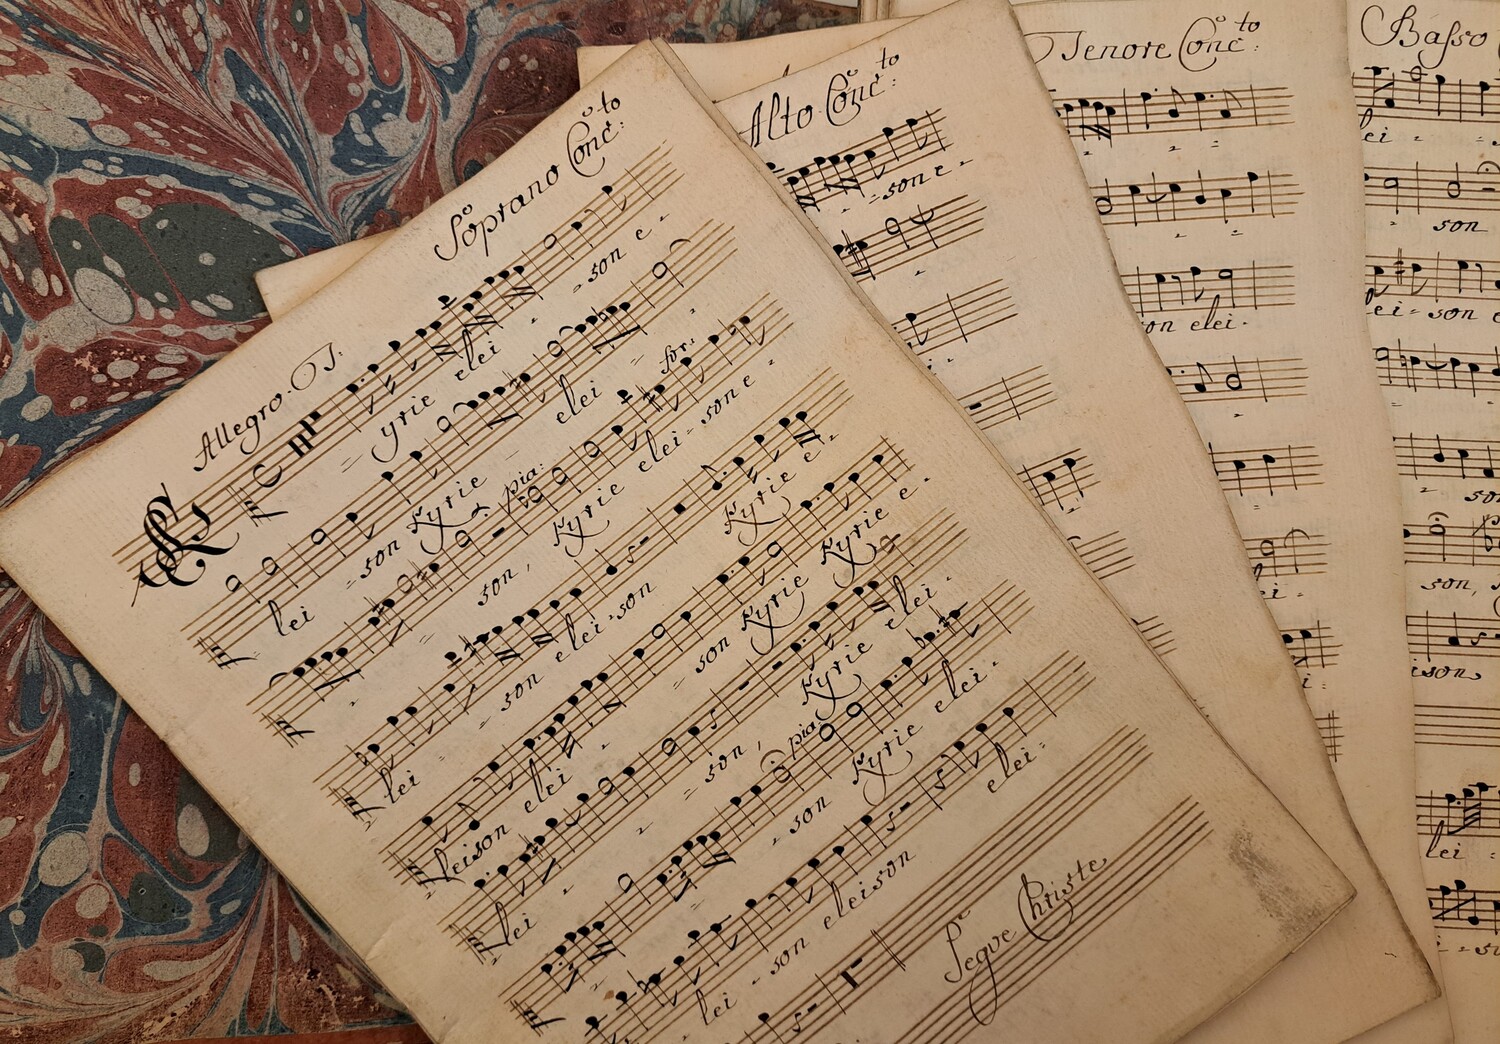 Sopº Soprano Conc:to
Allegro. T:
Kyrie elei = son e =
lei = son Kyrie elei
pia: for:
son, Kyrie elei = son e =
lei = son elei = son Kyrie e =
leison elei = son Kyrie Kyrie e =
lei = son, Kyrie elei =
pia:
= son Kyrie elei =
lei = son eleison elei =
Segue Christe
Alto Conc:to
= son e =
Tenore Conc:to
son elei =
Basso
lei =
son
lei = son e
son,
ison,
lei =